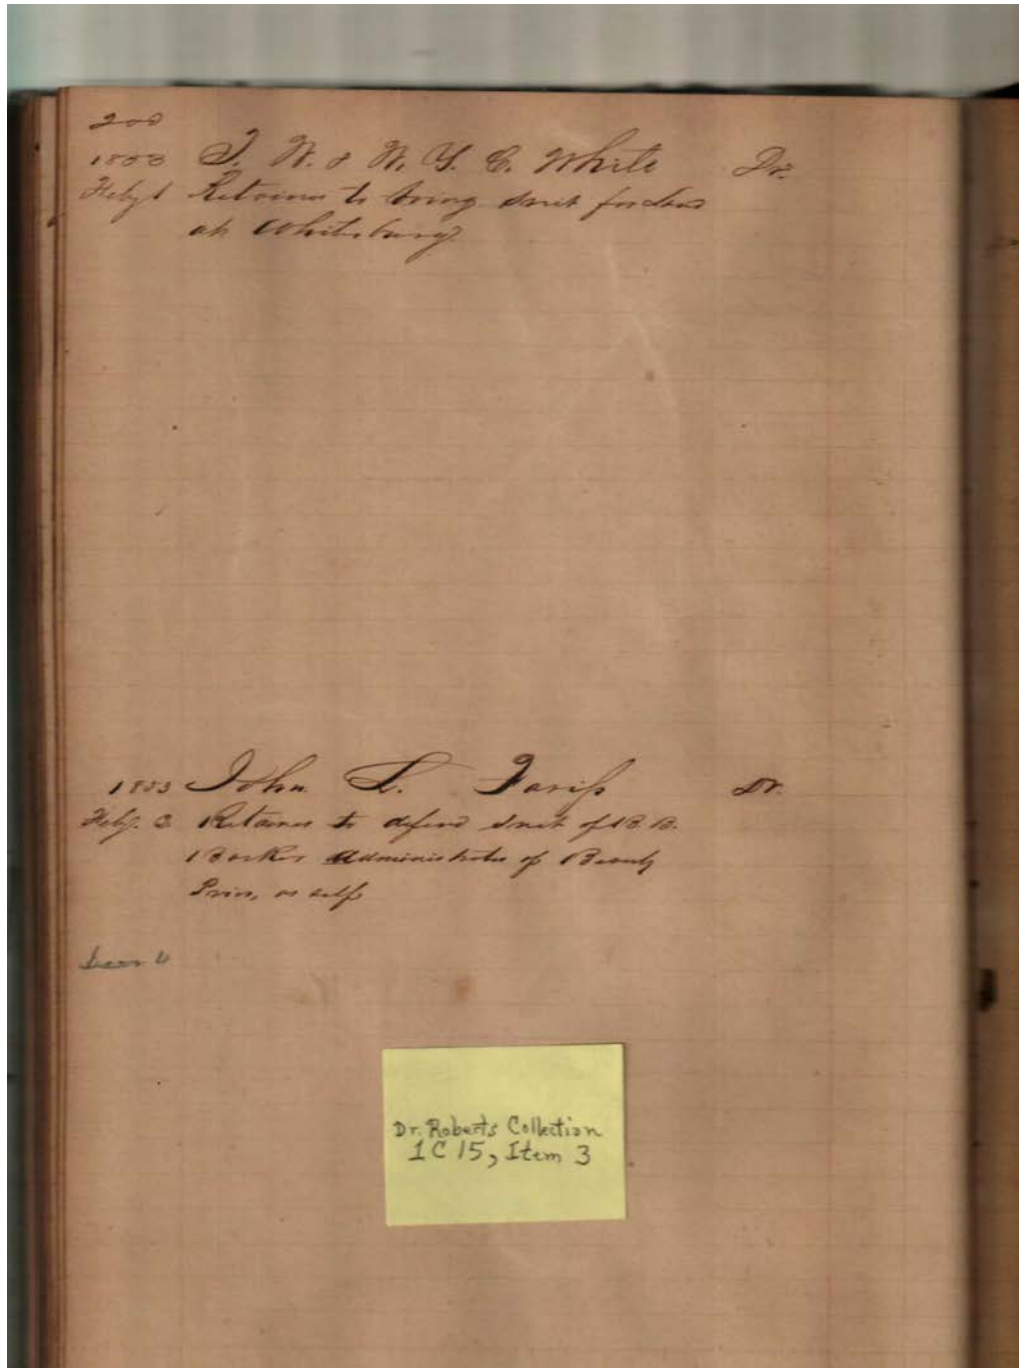 200
1853 T. W. & W. Y. C. White Dr.
Feby 1 Retainer to bring suit for land
at Whitesburg
1853 John L. Fariss Dr.
Feby. 3 Retainer to defend suit of B. B.
Barker Administrator of
self
Dr. Roberts Collection
1C15, Item 3